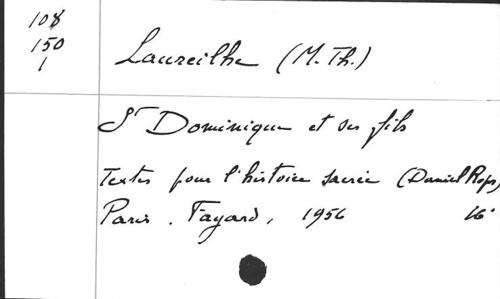 108
150
1
Laureilhe (M. Th.)
St Dominique et ses fils
Textes pour l'histoire sacrée (Daniel Rops)
Paris. Fayard, 1956 16°